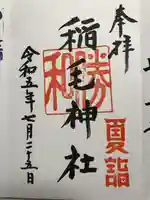 奉拝
夏詣
稲毛神社
勝
和
令和五年七月二十五日